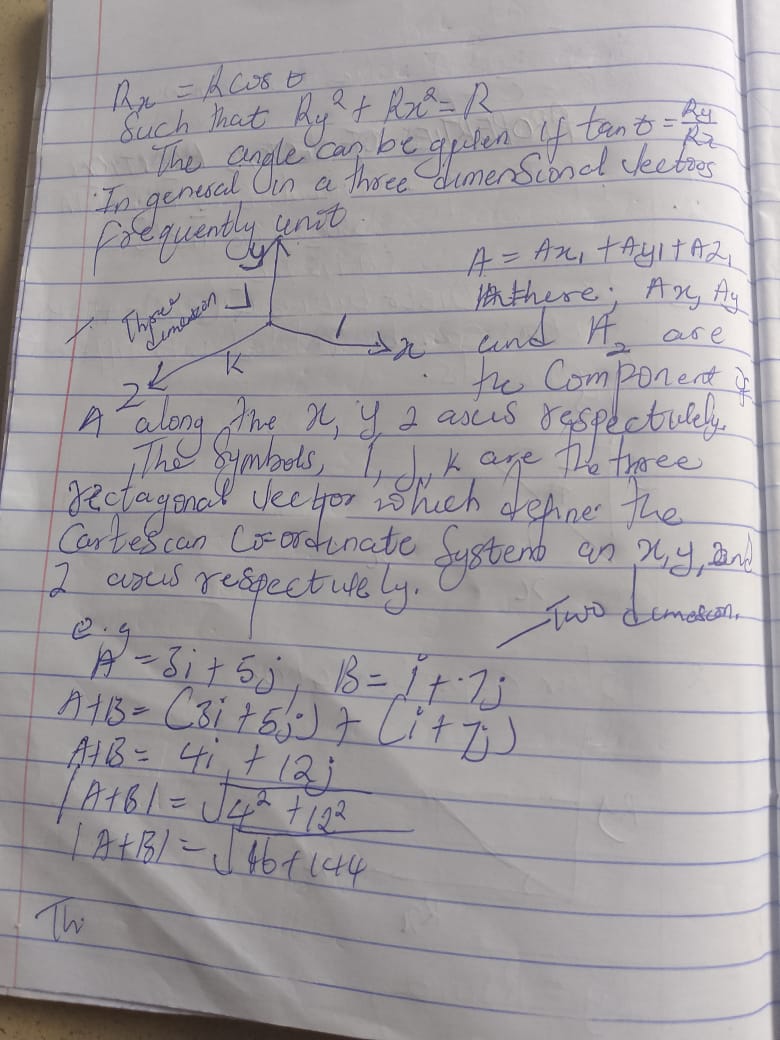 Rx = R cos θ
Such that Ry² + Rx² = R
The angle can be given if tan θ = Ry/Rx
In general in a three dimensional vectors
frequently unit.
y
A = Ax₁ + Ay₁ + Az₁
Three dimension
J
where; Ax, Ay
i
x
and Az are
K
the Component of
z
A along the x, y z axis respectively.
The Symbols, i, j, k are the three
rectagonal vector which define the
Cartescan Co-ordinate System an x, y, and
z axis respectively.
Two dimescon.
e.g
A = 3i + 5j, B = i + 7j
A+B = (3i + 5j) + (i + 7j)
A+B = 4i + 12j
|A+B| = √4² + 12²
|A+B| = √16 + 144
Th